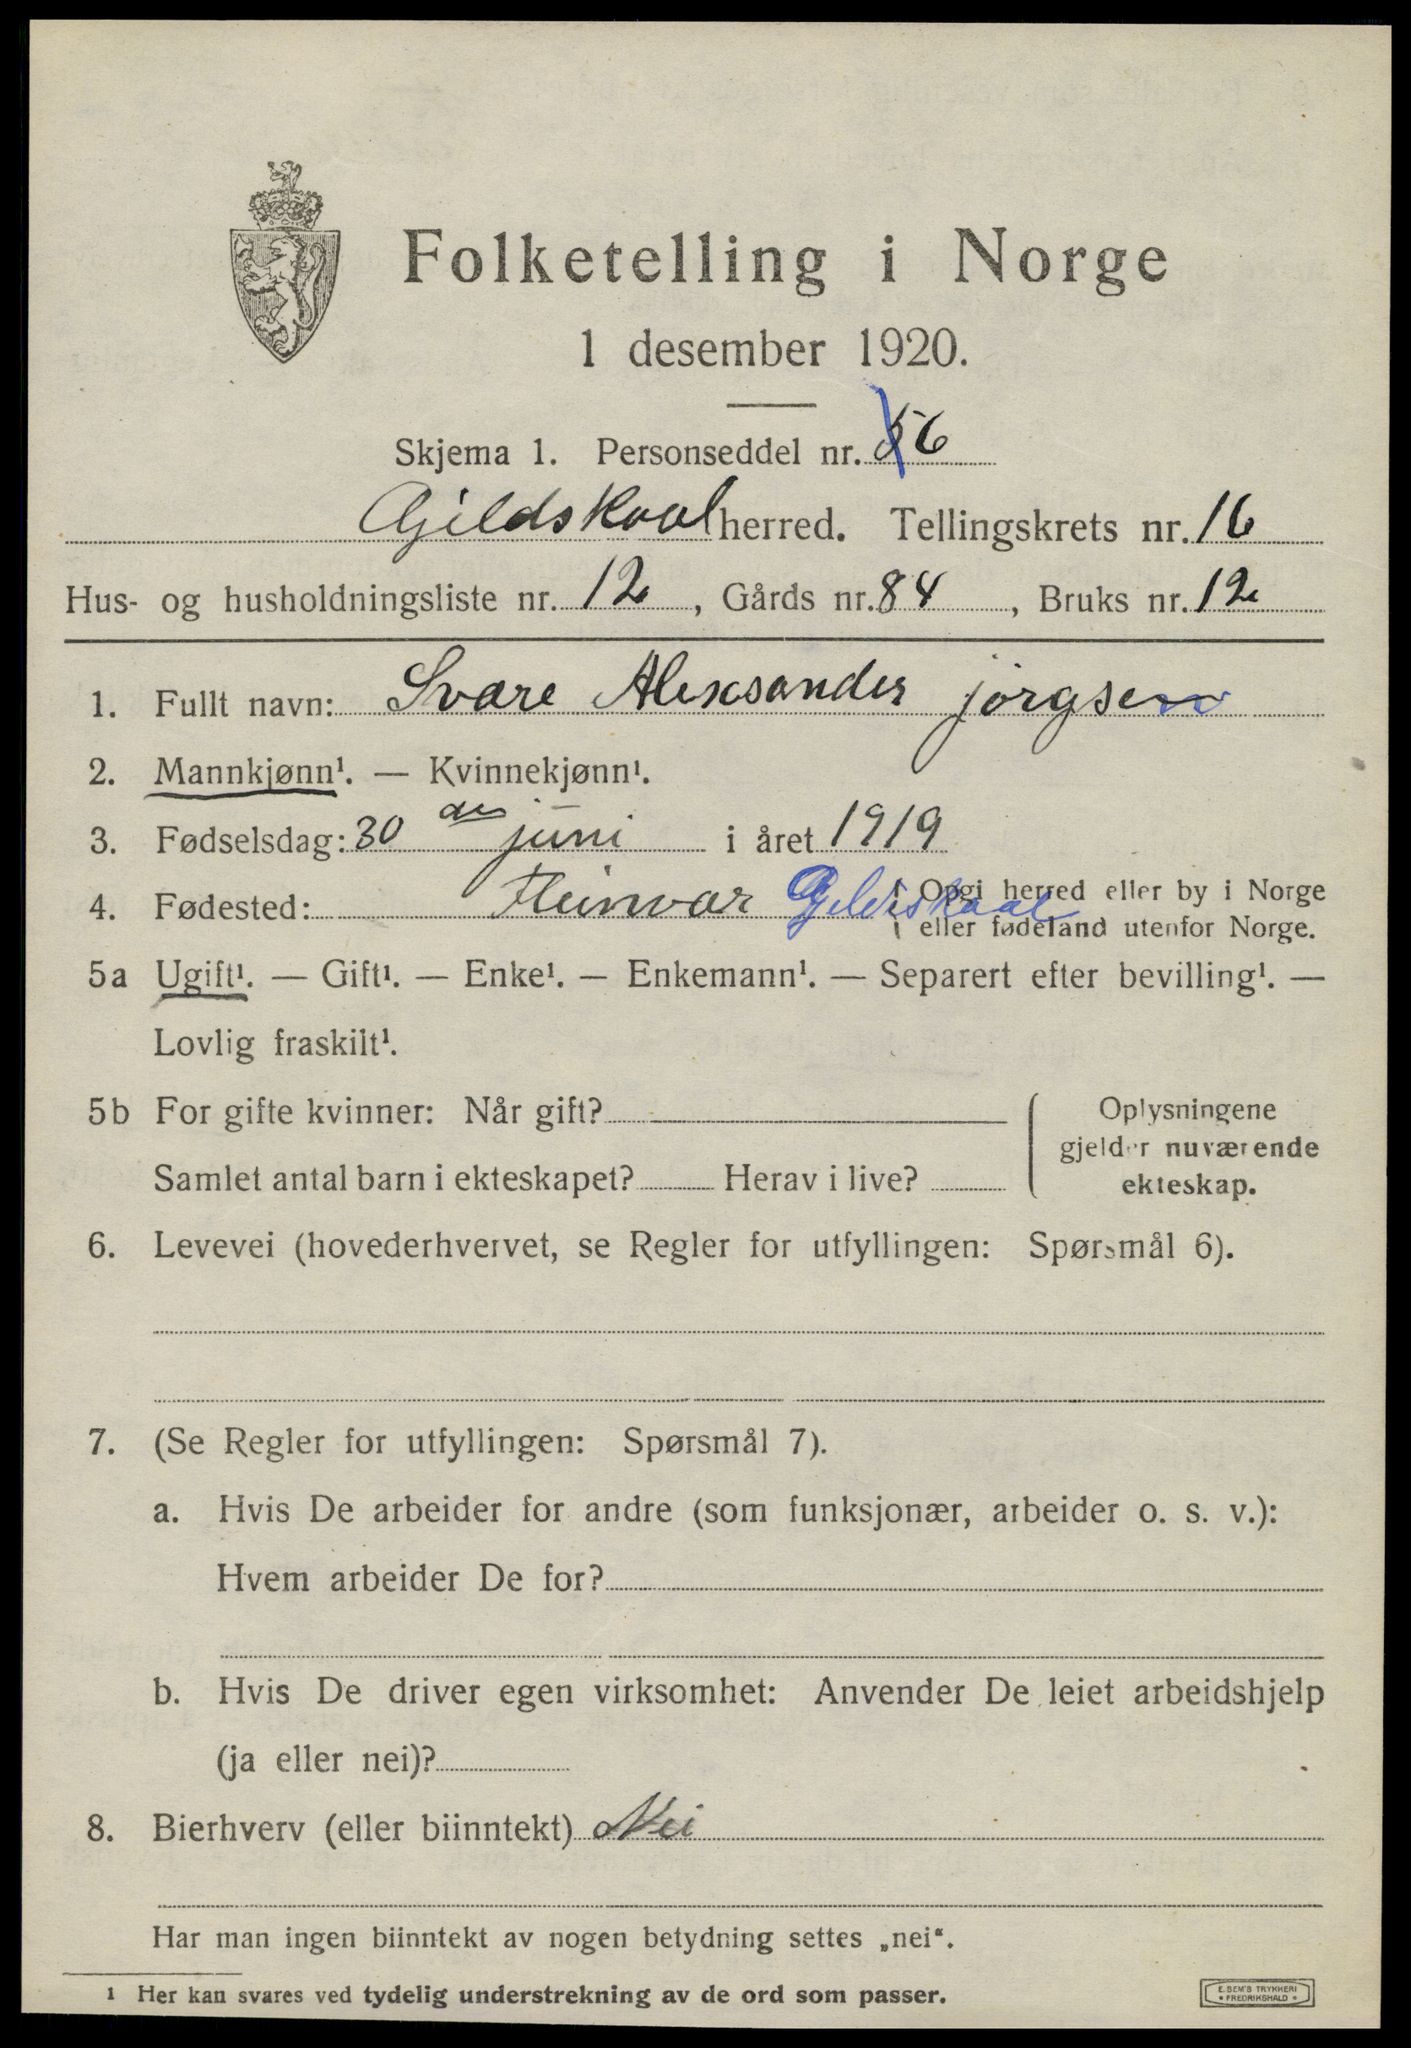 Folketelling i Norge
1 desember 1920.
Skjema 1. Personseddel nr. 56
Gildskaal herred. Tellingskrets nr. 16
Hus- og husholdningsliste nr. 12, Gårds nr. 84, Bruks nr. 12
1. Fullt navn: Svare Alexsander jørgsen
2. Mannkjønn¹. — Kvinnekjønn¹.
3. Fødselsdag: 30 juni i året 1919
4. Fødested: Fleinvær Gildskaal { Opgi herred eller by i Norge
eller fødeland utenfor Norge.
5a Ugift¹. — Gift¹. — Enke¹. — Enkemann¹. — Separert efter bevilling¹. —
Lovlig fraskilt¹.
5b For gifte kvinner: Når gift?
Samlet antal barn i ekteskapet? Herav i live?
Oplysningene
gjelder nuværende
ekteskap.
6. Levevei (hovederhvervet, se Regler for utfyllingen: Spørsmål 6).
7. (Se Regler for utfyllingen: Spørsmål 7).
a. Hvis De arbeider for andre (som funksjonær, arbeider o. s. v.):
Hvem arbeider De for?
b. Hvis De driver egen virksomhet: Anvender De leiet arbeidshjelp
(ja eller nei)?
8. Bierhverv (eller biinntekt) Nei
Har man ingen biinntekt av nogen betydning settes „nei“.
1 Her kan svares ved tydelig understrekning av de ord som passer.
E. SEM'S TRYKKERI
• FREDRIKSHALD •